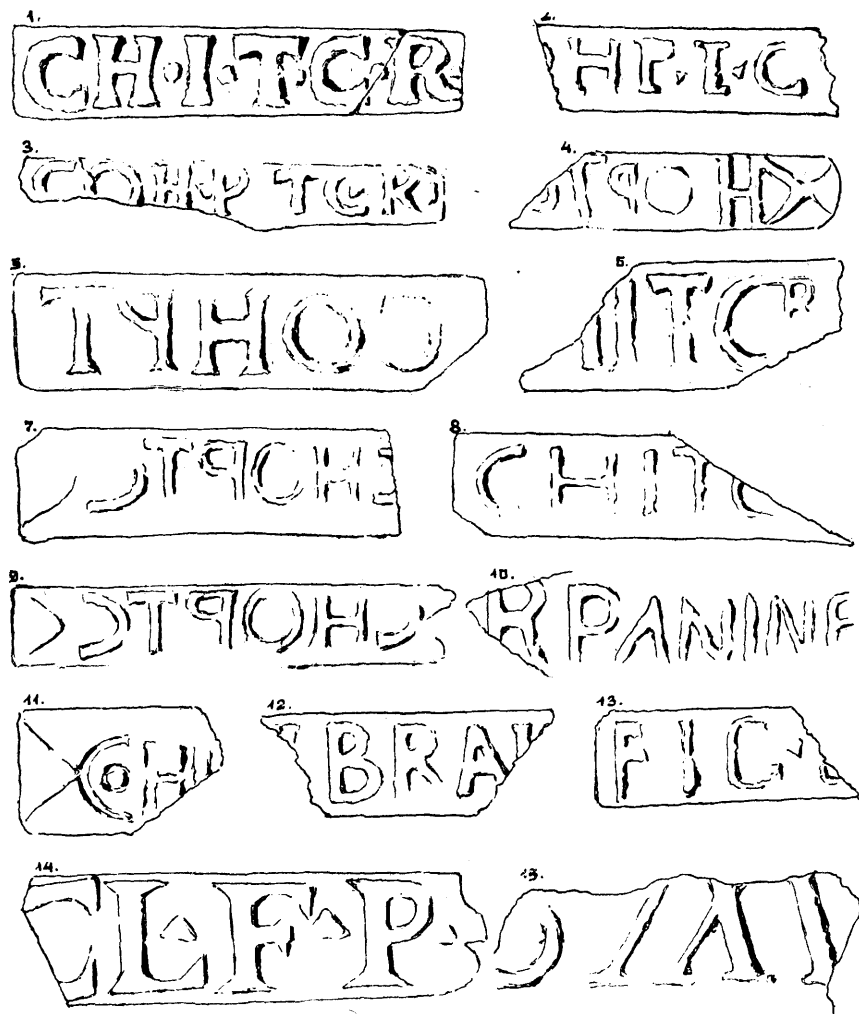 1.
CH·I·T·C·R
2.
HI·I·C
3.
COH TCR
4.
TPOH
5.
TPHOC
6.
ITCR
7.
CTPOH
8.
CHITC
9.
CTPOH
10.
R PANIN
11.
COH
12.
BRA
13.
FIC
14.
CL·F·P
15.